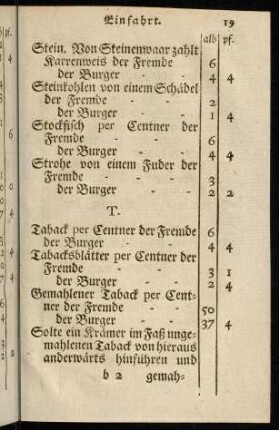 Einfahrt. 19
alb pf.
Stein. Von Steinenwaar zahlt
Karrenweis der Fremde 6
der Burger - - 4 4
Steinkohlen von einem Schädel
der Fremde - - 2
der Burger - - 1 4
Stockfisch per Centner der
Fremde - - 6
der Burger - - 4 4
Strohe von einem Fuder der
Fremde - - - 3
der Burger - - 2 2
T.
Taback per Centner der Fremde 6
der Burger - - 4 4
Tabacksblätter per Centner der
Fremde - - - 3 1
der Burger - - 2 4
Gemahlener Taback per Cent-
ner der Fremde - - 50
der Burger - - 37 4
Solte ein Krämer im Faß unge-
mahlenen Taback von hieraus
anderwärts hinführen und
b 2 gemah-